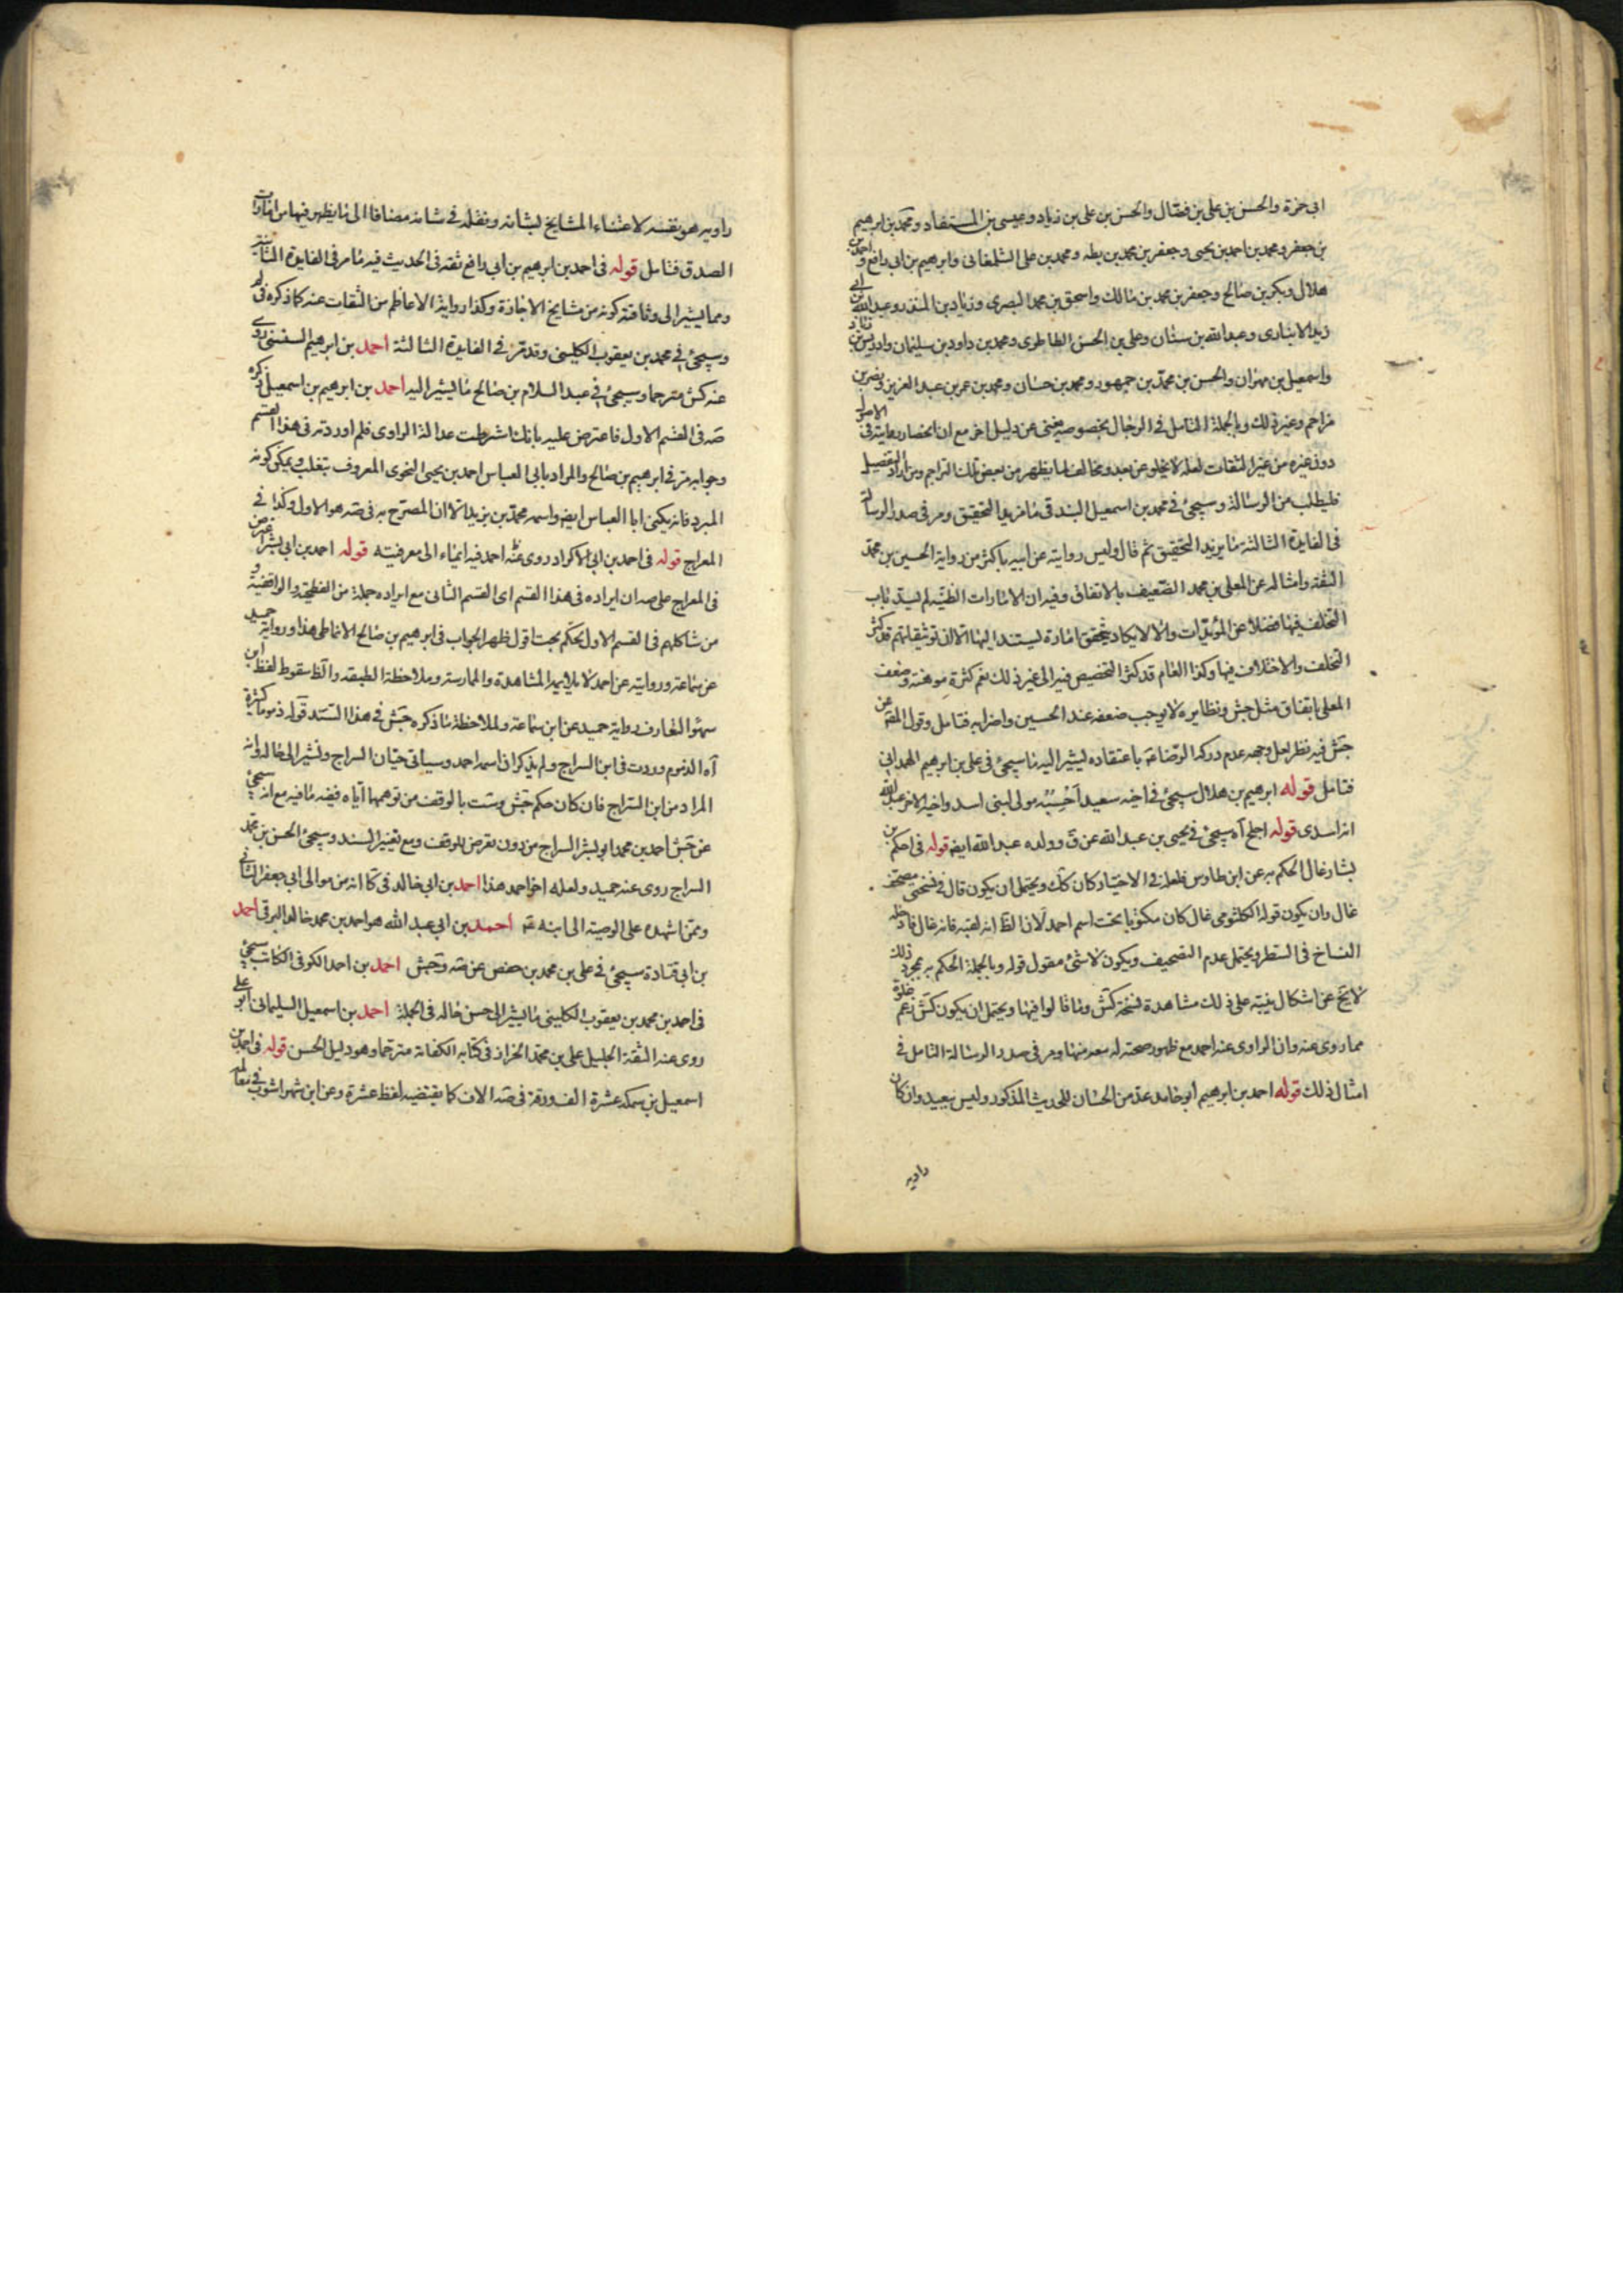 ابى حمزة والحسن بن على بن فضال والحسن بن على بن زياد وعيسى بن المستفاد ومحمد بن ابرهيم
بن جعفر ومحمد بن احمد بن يحيى وجعفر بن محمد بن بطه ومحمد بن على الشلمغانى وابرهيم بن ابى رافع واحمد بن
هلال وبكر بن صالح وجعفر بن محمد بن مالك واسحق بن محمد البصرى وزياد بن المنذر وعبد الله بن ابى
زيد الانبارى وعبد الله بن سنان وعلى بن الحسن الطاطرى ومحمد بن داود بن سليمان وادريس بن زياد
واسمعيل بن مهران والحسن بن محمد بن جمهور ومحمد بن حسان ومحمد بن عمر بن عبد العزيز ونضر بن
مزاحم وغير ذلك وبالجملة التامل فى الرجال بخصوصه يغنى عن دليل اخر مع ان انحصار رعايته فى الامر
دون غيره من غير الثقات لعله لا يخلو عن بعد ومخالف لما يظهر من بعض تلك التراجم ومن اراد التفصيل
فليطلب من الرسالة وسيجئ فى محمد بن اسمعيل البندقى ما مزيد التحقيق ومر فى صدر الرسالة
فى الفايدة الثالثة ما يزيد التحقيق ثم قال وليس روايته عن ابيه باكثر من رواية الحسين بن محمد
الثقة وامثاله عن المعلى بن محمد الضعيف بالاتفاق وفيه ان الامارات الظنية لم يسد باب
التخلف فيها فضلا عن المؤيدات والا لا يكاد يتحقق امارة يستند اليها الا ان توثيقاتهم قد كثر
التخلف والاختلاف فيها وكذا العام قد كثر التخصيص فيه الى غير ذلك نعم كثرة موهنة وضعف
المعلى باتفاق مثل جش ونظايره لا يوجب ضعفه عند الحسين واضرابه فتامل وقول المقم عن
جش فيه نظر لعل وجهه عدم دركه الرضا عم باعتقاده ليشير اليه ما سيجئ فى على بن ابرهيم الهمدانى
فتامل قوله ابرهيم بن هلال سيجئ فى اخيه سعيد مولى لبنى اسد واخيه الاخر عبد الله
انه اسدى قوله اجلح آه سيجئ فى يحيى بن عبد الله عن ق وولده عبد الله ايضا قوله فى احكم بن
بشار غال الحكم به عن ابن طاوس فلعله فى الاختيار كان كك ويحتمل ان يكون قال فى نسختى مصحف
غال وان يكون قوله الكلثومى غال كان مكتوبا تحت اسم احمد لان الظ انه لقبه فانه غال فادخله
النساخ فى السطر ويحتمل عدم التصحيف ويكون لا شئ مقول قوله وبالجملة الحكم به بمجرد ذلك
لا يخ عن اشكال نبه على ذلك مشاهدة نسخة كش وما قالوا فيها ويحتمل ان يكون كش زعم
مما روى عنه وان الراوى عنه احمد مع ظهور صحته له معه منها ومر فى صدر الرسالة التامل فى
امثال ذلك قوله احمد بن ابرهيم ابو حامد عد من الحسان للحديث المذكور وليس ببعيد وان كان
راويه
راويه هو نفسه لاعتناء المشايخ لبشانه ونقله فى شانه مضافا الى ما يظهر فيها من امارات
الصدق فتامل قوله فى احمد بن ابرهيم بن ابى رافع ثقه فى الحديث فيه ما مر فى الفايدة الثانية
ومما يشير الى وثاقته كونه من مشايخ الاجازة وكذا رواية الاعاظم من الثقات عنه كما ذكره فى
وسيجئ فى محمد بن يعقوب الكلينى وقد مر فى الفايدة الثالثة احمد بن ابرهيم السنسنى روى
عنه كش مترحما وسيجئ فى عبد السلام بن صالح ما يشير اليه احمد بن ابرهيم بن اسمعيل ذكره
صه فى القسم الاول فاعترض عليه بانك اشترطت عدالة الراوى فلم اوردته فى هذا القسم
وجوابه مر فى ابرهيم بن صالح والمراد بابى العباس احمد بن يحيى النحوى المعروف بثعلب ويمكن كونه
المبرد فانه يكنى ابا العباس ايضا واسمه محمد بن يزيد الا ان المصرح به فى صه هو الاول وكذا فى
المعراج قوله فى احمد بن ابى الاكراد روى عنه احمد فيه ايماء الى معرفيته قوله احمد بن ابى بشر
فى المعراج على صه ان ايراده فى هذا القسم اى القسم الثانى مع ايراده جملة من الفطحية والواقفية
من شاكلهم فى القسم الاول تحكم بحت اقول ظهر الجواب فى ابرهيم بن صالح الانماطى هذا ورواية حميد
عن سماعة وروايته عن احمد المشاهدة والممارسة وملاحظة الطبقه والظ سقوط لفظ ابن
سهوا رواية حميد عن ابن سماعة ولملاحظة ما ذكره جش فى هذا السند قوله ذموما كثيرة
آه الذموم وردت فى ابن السراج ولم يذكر ان اسمه احمد وسياتى حيان السراج ونشير الى حاله وانه
المراد من ابن السراج فان كان حكم جش وست بالوقف من توهمها اياه ففيه ما فيه مع انه سيجئ
عن جش احمد بن محمد ابو بشر السراج من دون تعرض للوقف ومع تغيير السند وسيجئ الحسن بن محمد
السراج روى عنه حميد ولعله اخو احمد هذا احمد بن ابى خالد فى كا انه من موالى ابى جعفر الثانى
وممن اشهده على الوصية الى ابنه عم احمد بن ابى عبد الله هو احمد بن محمد خالد البرقى احمد
بن ابى قتادة سيجئ فى على بن محمد بن حفص عن صه وجش احمد بن احمد الكوفى الكاتب سيجئ
فى احمد بن محمد بن يعقوب الكلينى ما يشير الى حسن حاله فى الجملة احمد بن اسمعيل السليمانى ابو على
روى عنه الثقة الجليل على بن محمد الخزاز فى كتابه الكفاية مترحما وهو دليل الحسن قوله فى احمد بن
اسمعيل بن سمكة عشرة الف ورقة فى صه الاف كما يقتضيه لفظ عشرة وعن ابن شهراشوب فى معالم